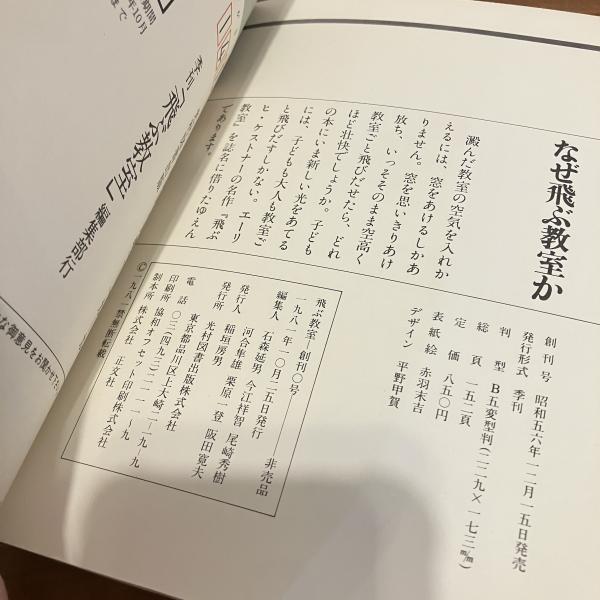 なぜ飛ぶ教室か
澱んだ教室の空気を入れか
えるには、窓をあけるしかあ
りません。窓を思いきりあけ
放ち、いっそそのまま空高く
教室ごと飛びだせたら、どれ
ほど壮快でしょうか。子ども
の本にいま新しい光をあてる
には、子どもも大人も教室ご
と飛びだすしかない。エーリ
ヒ・ケストナーの名作『飛ぶ
教室』を誌名に借りたゆえん
であります。
創刊号 昭和五六年一二月一五日発売
発行形式 季刊
判型 B五変型判(二二九×一七三m/m)
総頁 一五二頁
定価 八五〇円
表紙絵 赤羽末吉
デザイン 平野甲賀
飛ぶ教室—創刊〇号
一九八一年一〇月二五日発行 非売品
編集人 石森延男 今江祥智 尾崎秀樹
河合隼雄 栗原一登 阪田寛夫
発行人 稲垣房男
発行所 光村図書出版株式会社
東京都品川区上大崎二-一九-九
電話 〇三-四九三-二一一一
印刷所 協和オフセット印刷株式会社
製本所 株式会社 正文社
©一九八一禁無断転載
季刊「飛ぶ教室」編集部行
期間
年10月
まで
な御意見をお聞かせ下